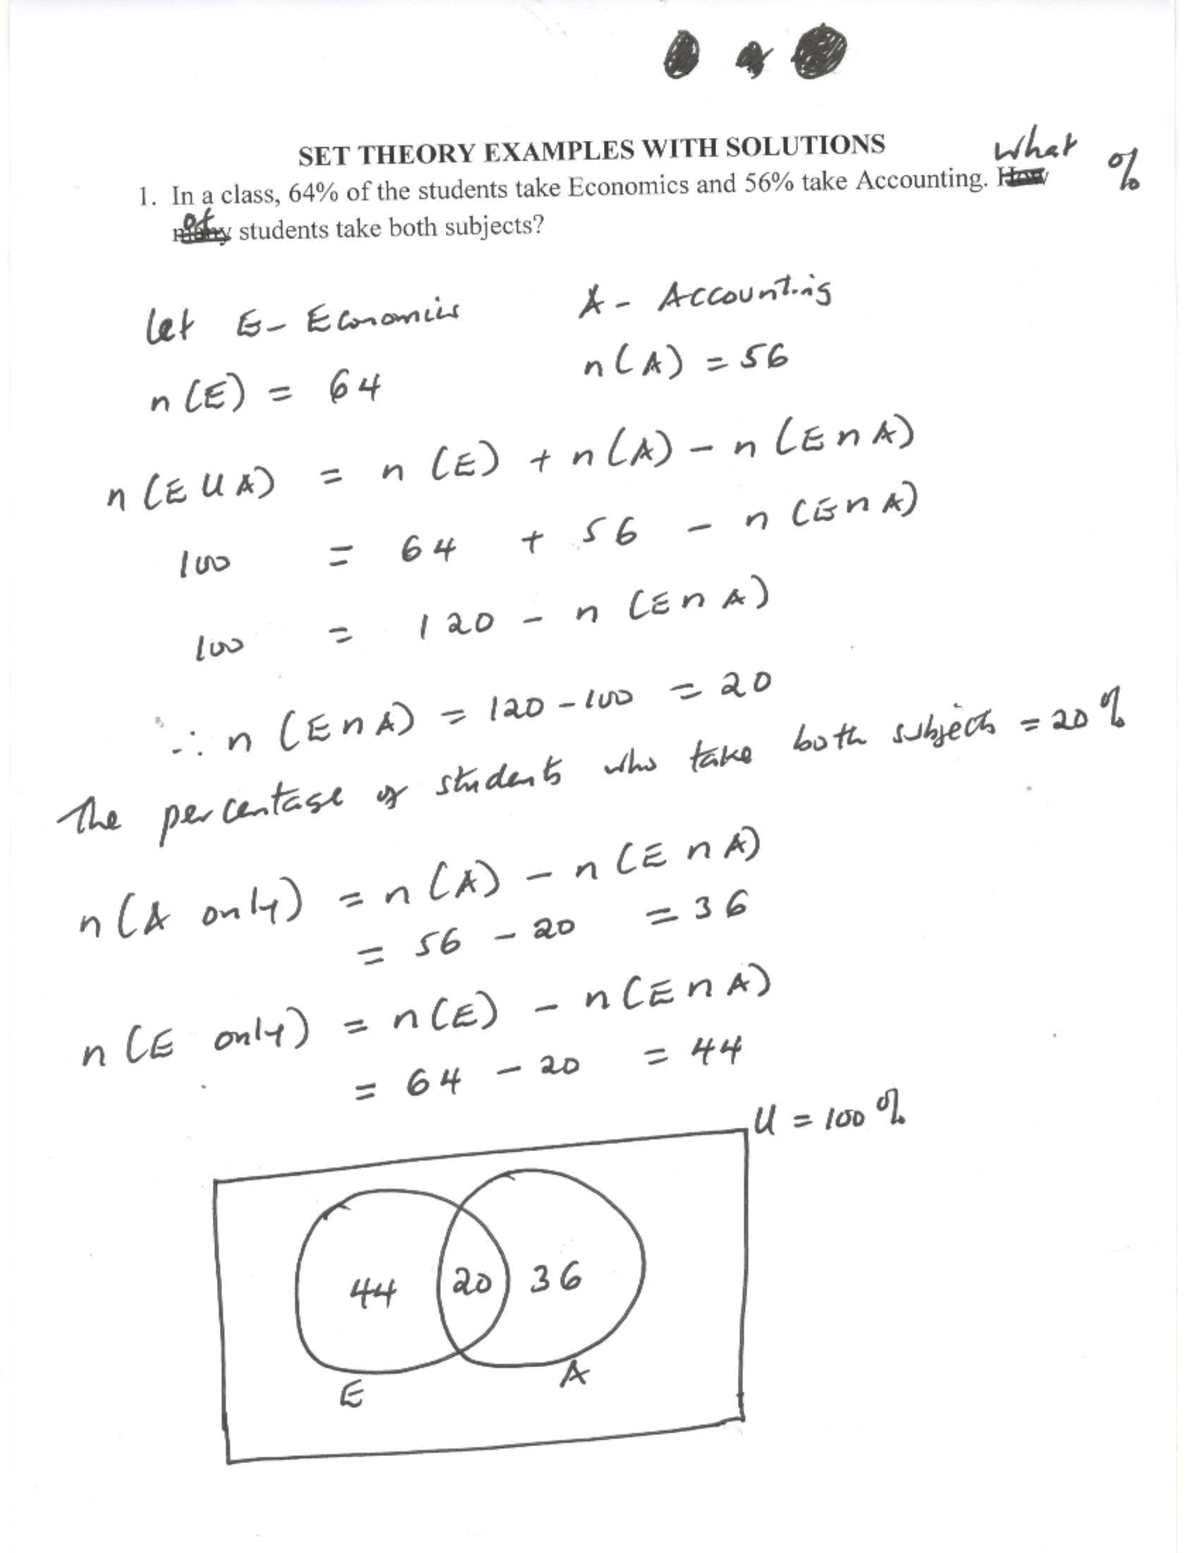 SET THEORY EXAMPLES WITH SOLUTIONS
1. In a class, 64% of the students take Economics and 56% take Accounting. How What %
many of students take both subjects?
Let E - Economics A - Accounting
n(E) = 64 n(A) = 56
n(E ∪ A) = n(E) + n(A) - n(E ∩ A)
100 = 64 + 56 - n(E ∩ A)
100 = 120 - n(E ∩ A)
∴ n(E ∩ A) = 120 - 100 = 20
The percentage of students who take both subjects = 20%
n(A only) = n(A) - n(E ∩ A)
= 56 - 20 = 36
n(E only) = n(E) - n(E ∩ A)
= 64 - 20 = 44
U = 100%
44 20 36
E A